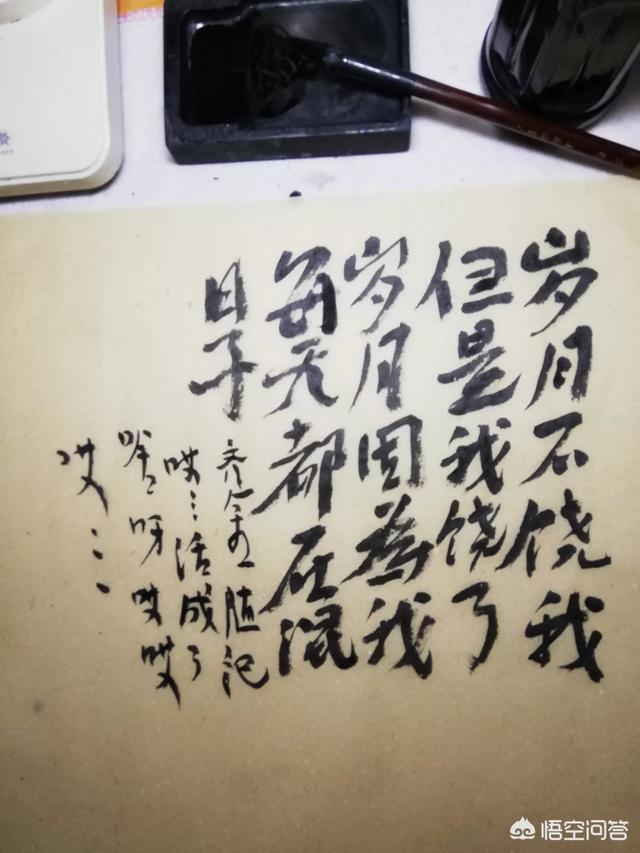 岁月不饶我
但是我饶了
岁月因為我
每天都在混
日子
随记
哎…活成了
呀哎哎
哎…
悟空问答